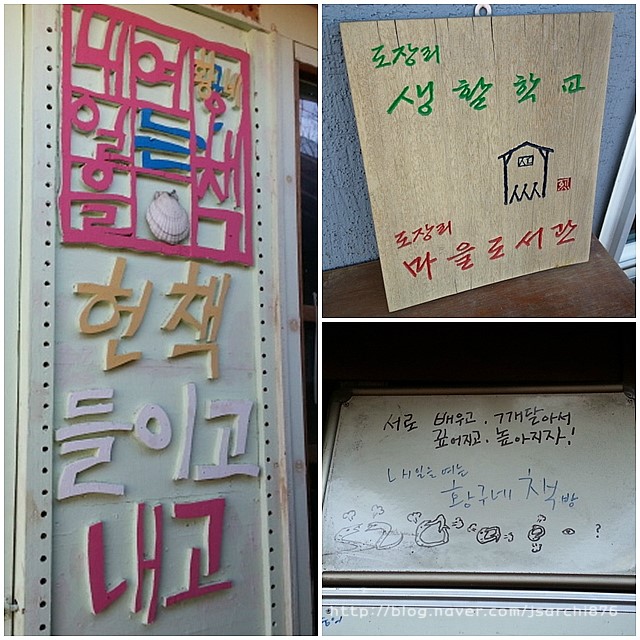 내일을
여는
황구네
책
헌책
들이고
내고
도장리
생활학교
도장리
마을도서관
서로 배우고, 깨달아서
깊어지고, 높아지자!
내일을 여는
황구네 책방
?